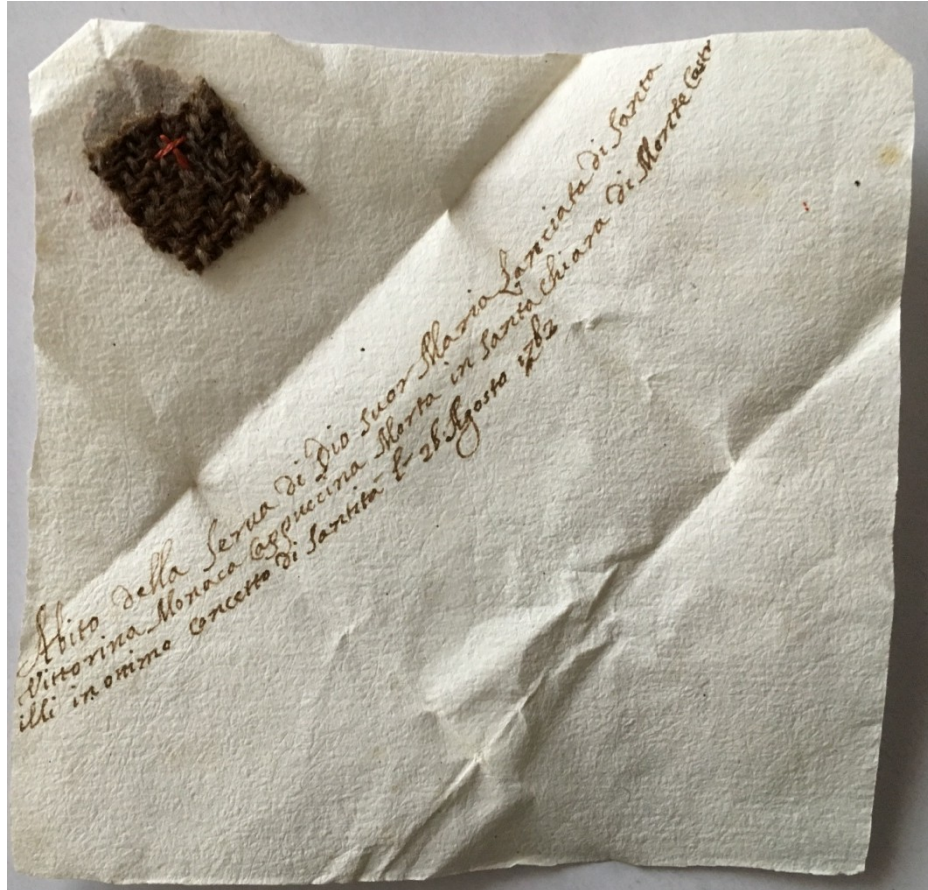 Abito della Serua di Dio Suor Maria Lanciata di Santa
Vittorina Monaca Cappuccina Morta in Santa Chiara di Monte Castr
illi in ottimo Concetto di Santità l- 26 Agosto 1782